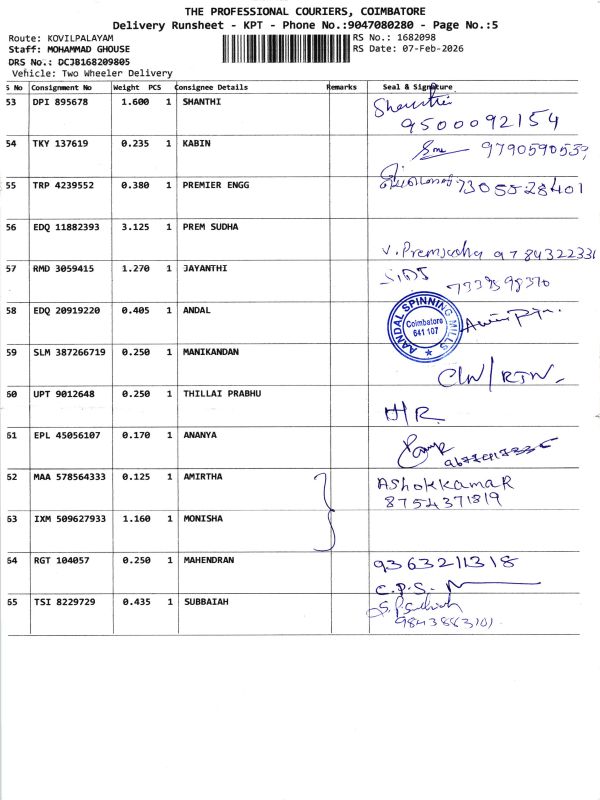 THE PROFESSIONAL COURIERS, COIMBATORE
Delivery Runsheet - KPT - Phone No.:9047080280 - Page No.:5
Route: KOVILPALAYAM
RS No.: 1682098
Staff: MOHAMMAD GHOUSE
RS Date: 07-Feb-2026
DRS No.: DCJB168209805
Vehicle: Two Wheeler Delivery
S No Consignment No Weight PCS Consignee Details Remarks Seal & Signature
53 DPI 895678 1.600 1 SHANTHI Shanthi
9500092154
54 TKY 137619 0.235 1 KABIN 9790590539
55 TRP 4239552 0.380 1 PREMIER ENGG 7305528401
56 EDQ 11882393 3.125 1 PREM SUDHA
V. Premsudha 9784322331
57 RMD 3059415 1.270 1 JAYANTHI
58 EDQ 20919220 0.405 1 ANDAL
AANDAL SPINNING MILLS
Coimbatore
641 107
59 SLM 387266719 0.250 1 MANIKANDAN
CLW/RTW
60 UPT 9012648 0.250 1 THILLAI PRABHU
H/R.
61 EPL 45056107 0.170 1 ANANYA
62 MAA 578564333 0.125 1 AMIRTHA AShokkamaR
8754371819
63 IXM 509627933 1.160 1 MONISHA
64 RGT 104057 0.250 1 MAHENDRAN 9363211318
C.P.S.
65 TSI 8229729 0.435 1 SUBBAIAH
9843883101